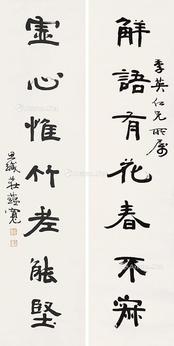 解語有花春不寂
季英仁兄所屬
虛心惟竹老能堅
思緘莊蘊寬